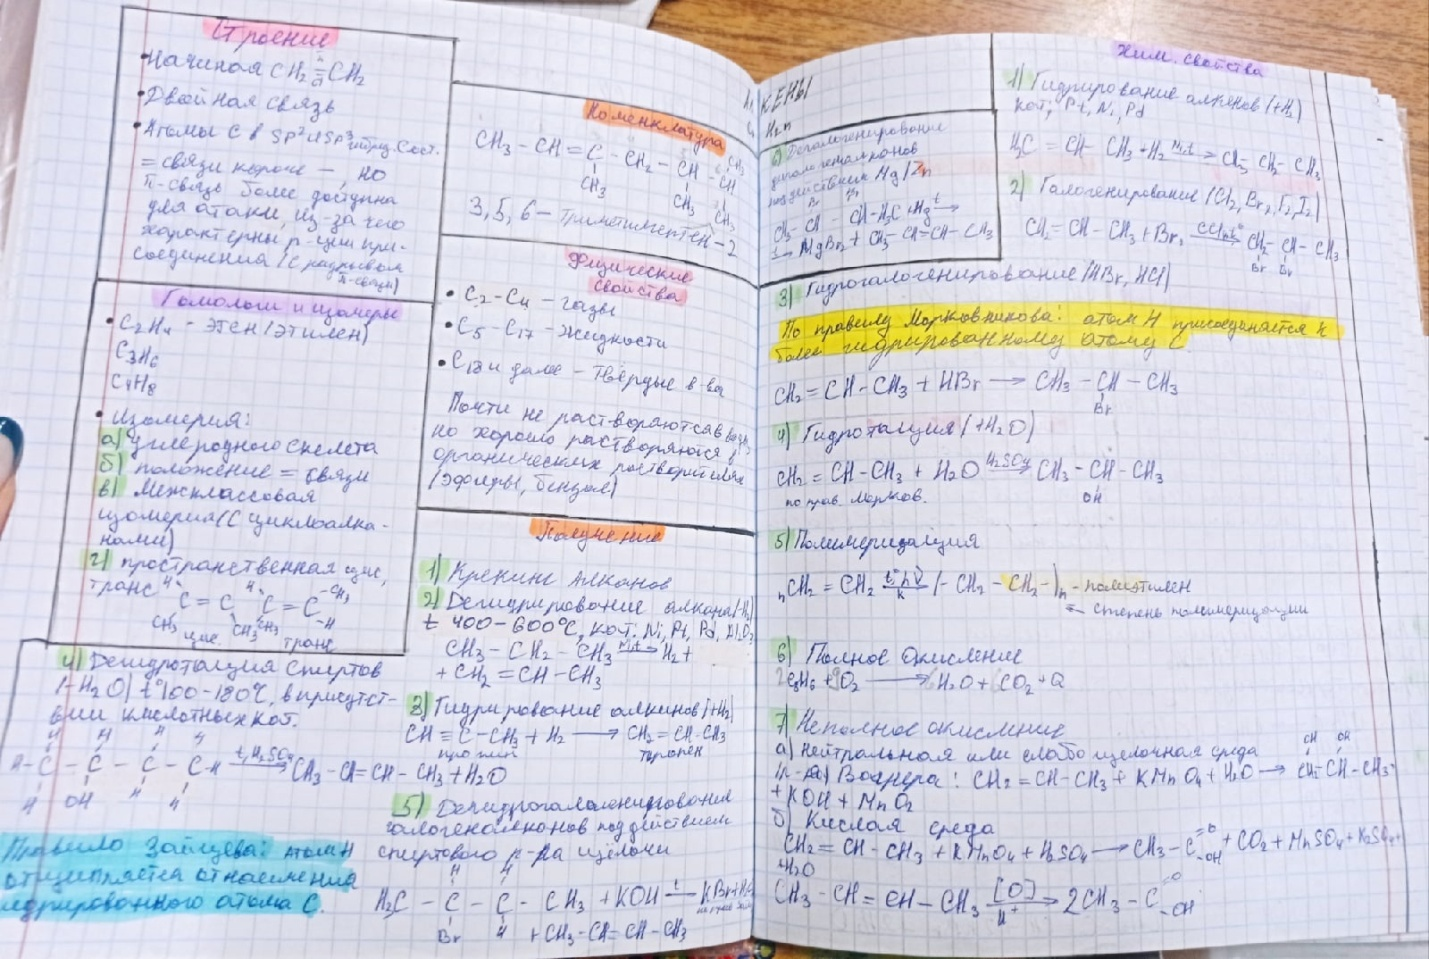 Строение
• Начиная CH₂ = CH₂
• Двойная связь
• Атомы C в SP² и SP³
= связи короче —, но
π-связь более доступна
для атаки, из-за чего
характерны р-ции при-
соединения (с разрывом
π-связи)
Гомологи и изомеры
• C₂H₄ - этен (этилен)
C₃H₆
C₄H₈
• Изомерия:
а) углеродного скелета
б) положение = связи
в) Межклассовая
изомерия (с циклоалка-
нами)
г) пространственная цис,
транс
H H
C = C C = C
CH₃ CH₃ CH₃ -CH₃ -H
цис. транс
Номенклатура
CH₃ - CH = C - CH₂ - CH - CH
CH₃ CH₃ CH₃
CH₃
3,5,6 - Триметил -2
Физические
свойства
• C₂-C₄ - газы
• C₅ - C₁₇ - жидкости
• C₁₈ и далее - твёрдые в-ва
Почти не растворяются в воде,
но хорошо растворяются в
органических растворителях
(эфиры, бензол)
Получение
1) Крекинг Алканов
2) Дегидрирование алкана (-H₂)
t 400-600°C, кат: Ni, Pt, Pd, Al₂O₃
CH₃ - CH₂ - CH₃ → H₂ +
+ CH₂ = CH - CH₃
3) Гидрирование алкинов (+H₂)
CH ≡ C - CH₃ + H₂ → CH₂ = CH-CH₃
пропин пропен
4) Дегидротация спиртов
(-H₂O) в присутст-
вии кислотных кат.
H H H H
H - C - C - C - C H t, H₂SO₄→ CH₃ - CH = CH - CH₃ + H₂O
H OH H H
Правило Зайцева: атом H
отщипляется от наименее
гидрированного атома C.
5) Дегидрогалогенирование
галогеналканов под действием
спиртового р-ра щёлочи
H H
H₃C - C - C - CH₃ + KOH t→ KBr + H₂O
Br H + CH₃ - CH = CH - CH₃
АЛКЕНЫ
CₙH₂ₙ
6) Дегалогенирование
дигалогеналканов
под действием Mg/Zn
Br Br
CH₃ - CH - CH - H₃C + Mg t→
→ MgBr₂ + CH₃ - CH = CH - CH₃
Хим. свойства
1) Гидрирование алкенов (+H₂)
кат: Pt, Ni, Pd
H₂C = CH - CH₃ + H₂ → CH₃ - CH₂ - CH₃
2) Галогенирование (Cl₂, Br₂, F₂, I₂)
CH₂ = CH - CH₃ + Br₂ → CH₂ - CH - CH₃
Br Br
3) Гидрогалогенирование (HBr, HCl)
По правилу Марковникова: атом H присоединяется к
более гидрированному атому C.
CH₂ = CH - CH₃ + HBr → CH₃ - CH - CH₃
Br
4) Гидротация (+H₂O)
CH₂ = CH - CH₃ + H₂O H₂SO₄→ CH₃ - CH - CH₃
по прав. Марков. OH
5) Полимеризация
nCH₂ = CH₂ → (- CH₂ - CH₂ -)n - полиэтилен
степень полимеризации
6) Полное Окисление
2C₃H₆ + 9O₂ → 6H₂O + 6CO₂ + Q
7) Неполное окисление
а) Нейтральная или слабо щелочная среда
OH OH
Вагнера: CH₂ = CH - CH₃ + KMnO₄ + H₂O → CH₂ - CH - CH₃
+ KOH + MnO₂
б) Кислая среда
CH₂ = CH - CH₃ + KMnO₄ + H₂SO₄ → CH₃ - C =O -OH + CO₂ + MnSO₄ + K₂SO₄ +
+H₂O
CH₃ - CH = CH - CH₃ [O] H⁺→ 2CH₃ - C =O -OH